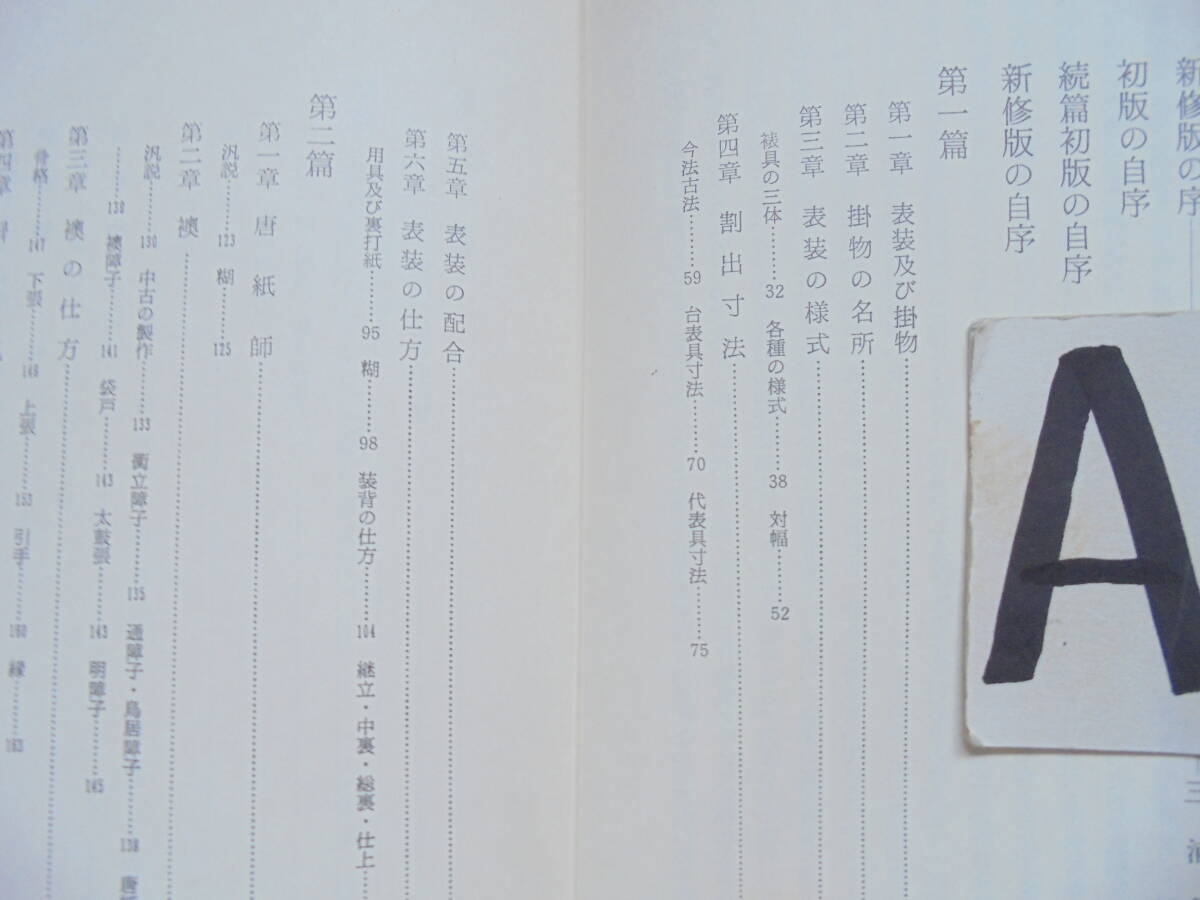 新修版の序
三
初版の自序
続篇初版の自序
新修版の自序
第一篇
第一章 表装及び掛物
第二章 掛物の名所
第三章 表装の様式
裱具の三体………32 各種の様式………38 対幅………52
第四章 割出寸法
今法古法………59 台表具寸法………70 代表具寸法………75
第五章 表装の配合
第六章 表装の仕方
用具及び裏打紙………95 糊………98 装背の仕方………104 継立・中裏・総裏・仕上
第二篇
第一章 唐紙師
汎説………123 糊………125
第二章 襖
汎説………130 中古の製作………133 衝立障子………135 通障子・鳥居障子………138
………138 襖障子………141 袋戸………143 太鼓張………143 明障子………145
第三章 襖の仕方
骨格………147 下張………149 上張………153 引手………160 縁………163
第四章
A